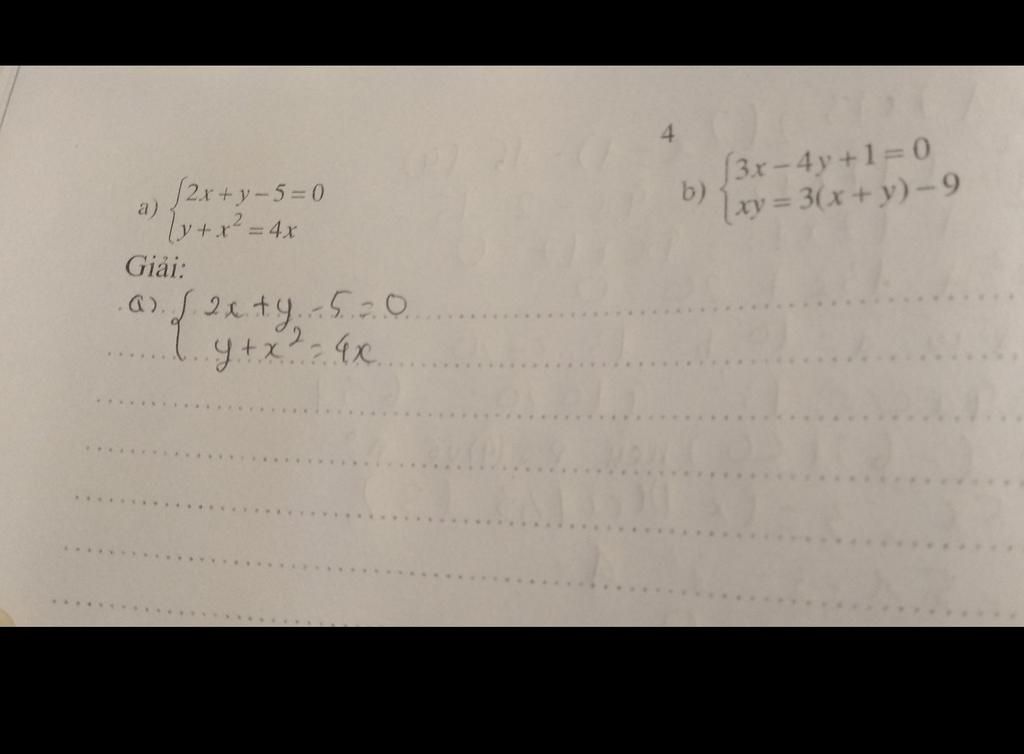 4
a) {2x + y − 5 = 0
y + x² = 4x
b) {3x − 4y + 1 = 0
xy = 3(x + y) − 9
Giải:
a) { 2x + y - 5 = 0
y + x² = 4x